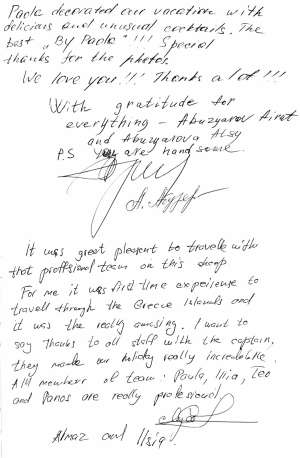 Paola decorated our vacation with
delicious and unusual cocktails. The
best „By Paola"!!! Special
thanks for the photos.
We love you!!! Thanks a lot!!!
With gratitude for
everything – Abuzyarov Airat
and Abuzyarova Alsy
P.S You are handsome.
It was great pleasent to travelle with
that proffsional team on this
For me it was first time experience to
travell through the Greece Islands and
it was the really amusing. I want to
say thanks to all staff with the captain,
they made our holiday really incredible.
All members of team: Paula, Ilia, Teo
and Panos are really profesional
Almaz and